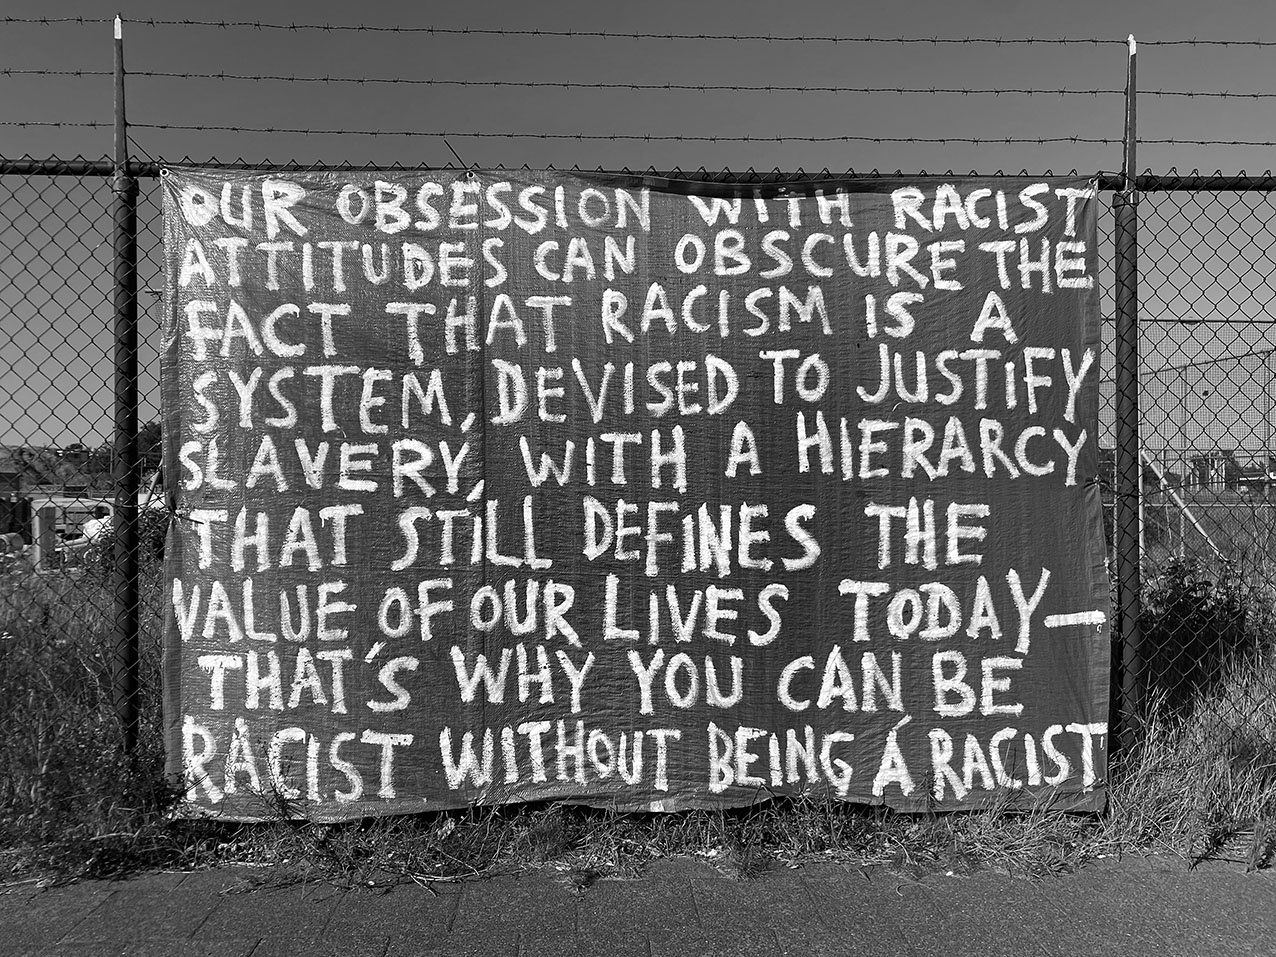 OUR OBSESSION WITH RACIST
ATTITUDES CAN OBSCURE THE
FACT THAT RACISM IS A
SYSTEM, DEVISED TO JUSTIFY
SLAVERY, WITH A HIERARCY
THAT STILL DEFINES THE
VALUE OF OUR LIVES TODAY—
THAT'S WHY YOU CAN BE
RACIST WITHOUT BEING Á RACIST